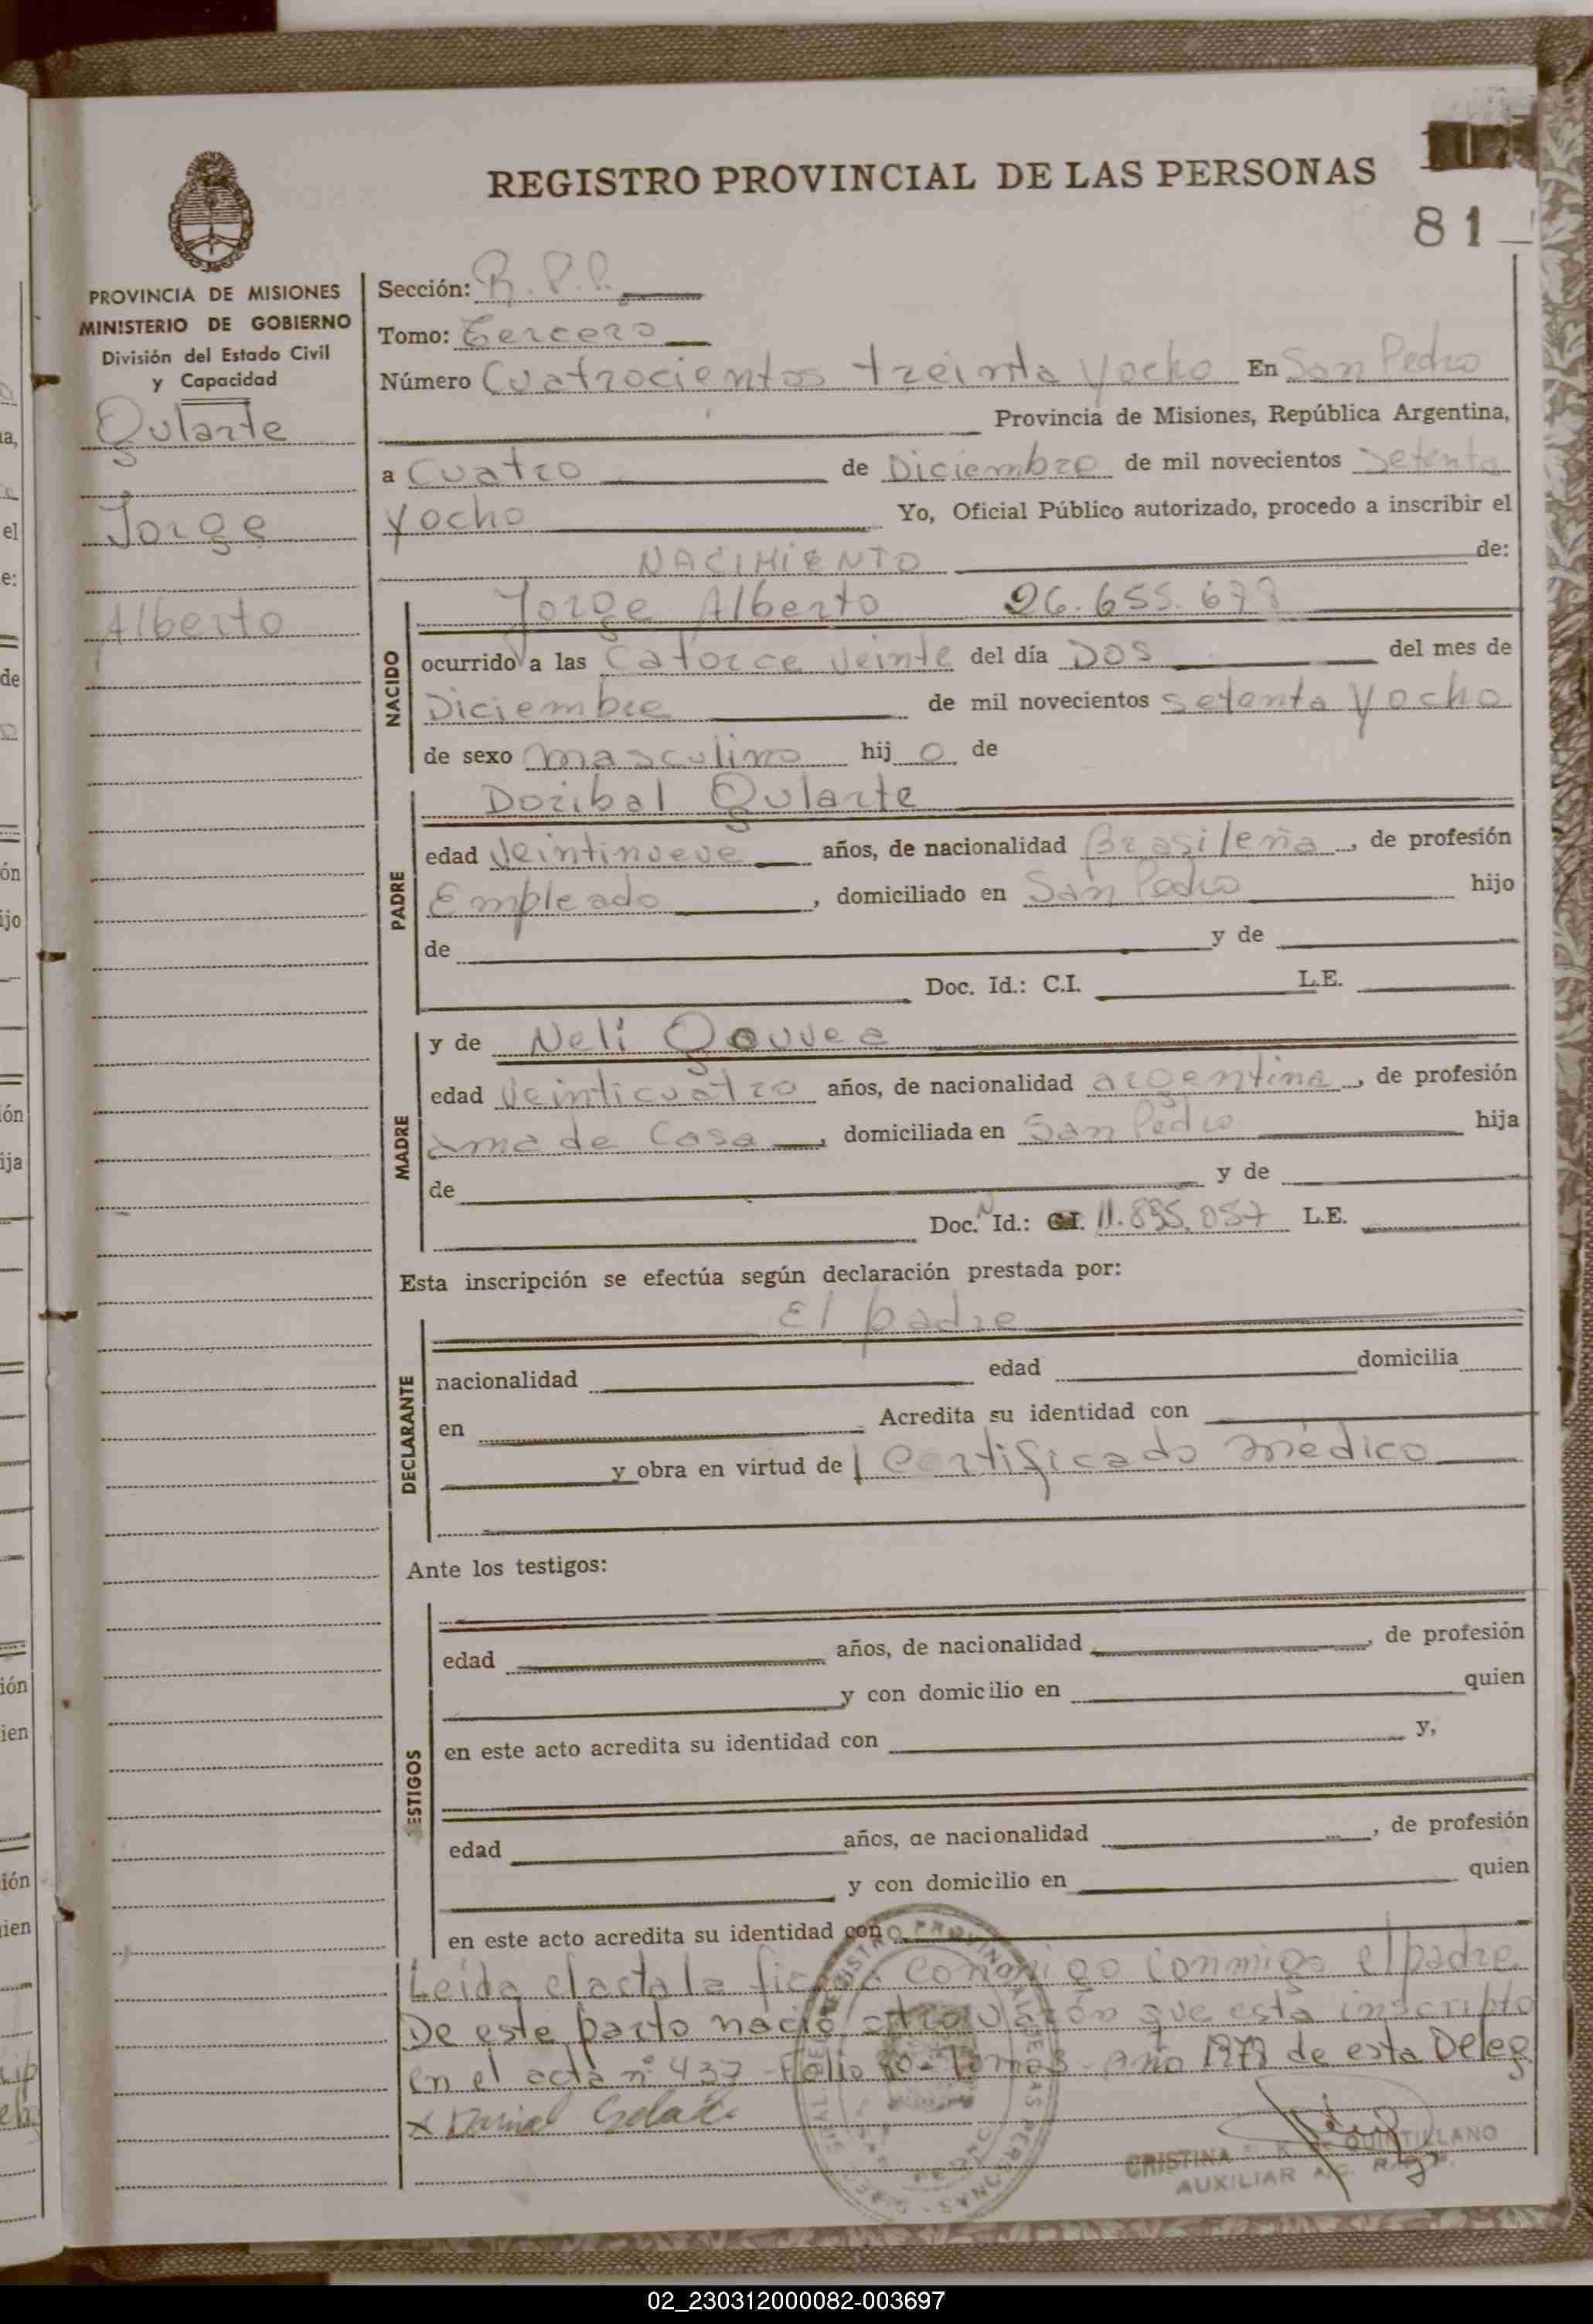 REGISTRO PROVINCIAL DE LAS PERSONAS
81
PROVINCIA DE MISIONES
MINISTERIO DE GOBIERNO
División del Estado Civil
y Capacidad
Gularte
Jorge
Alberto
Sección: R.P.P.
Tomo: Tercero
Número Cuatrocientos treinta y ocho En San Pedro
Provincia de Misiones, República Argentina,
a Cuatro de Diciembre de mil novecientos setenta
y ocho Yo, Oficial Público autorizado, procedo a inscribir el
NACIMIENTO de:
NACIDO
Jorge Alberto 26.655.678
ocurrido a las Catorce veinte del día Dos del mes de
Diciembre de mil novecientos setenta y ocho
de sexo masculino hijo de
PADRE
Doribal Gularte
edad veintinueve años, de nacionalidad Brasileña, de profesión
Empleado, domiciliado en San Pedro hijo
de y de
Doc. Id.: C.I. L.E.
MADRE
y de Neli Gouvea
edad veinticuatro años, de nacionalidad argentina, de profesión
ama de Casa, domiciliada en San Pedro hija
de y de
Doc. N Id.: C.I. 11.895.057 L.E.
Esta inscripción se efectúa según declaración prestada por:
DECLARANTE
El padre
nacionalidad edad domicilia
en Acredita su identidad con
y obra en virtud de Certificado médico
Ante los testigos:
TESTIGOS
edad años, de nacionalidad, de profesión
y con domicilio en quien
en este acto acredita su identidad con y,
edad años, de nacionalidad, de profesión
y con domicilio en quien
en este acto acredita su identidad con
Leida el acta la firma conmigo conmigo el padre
De este parto nació otro varón que está inscripto
en el acta nº 437 - Folio 80 - Tomo 3 - Año 1978 de esta Deleg
CRISTINA QUINTILLANO
AUXILIAR
02_230312000082-003697